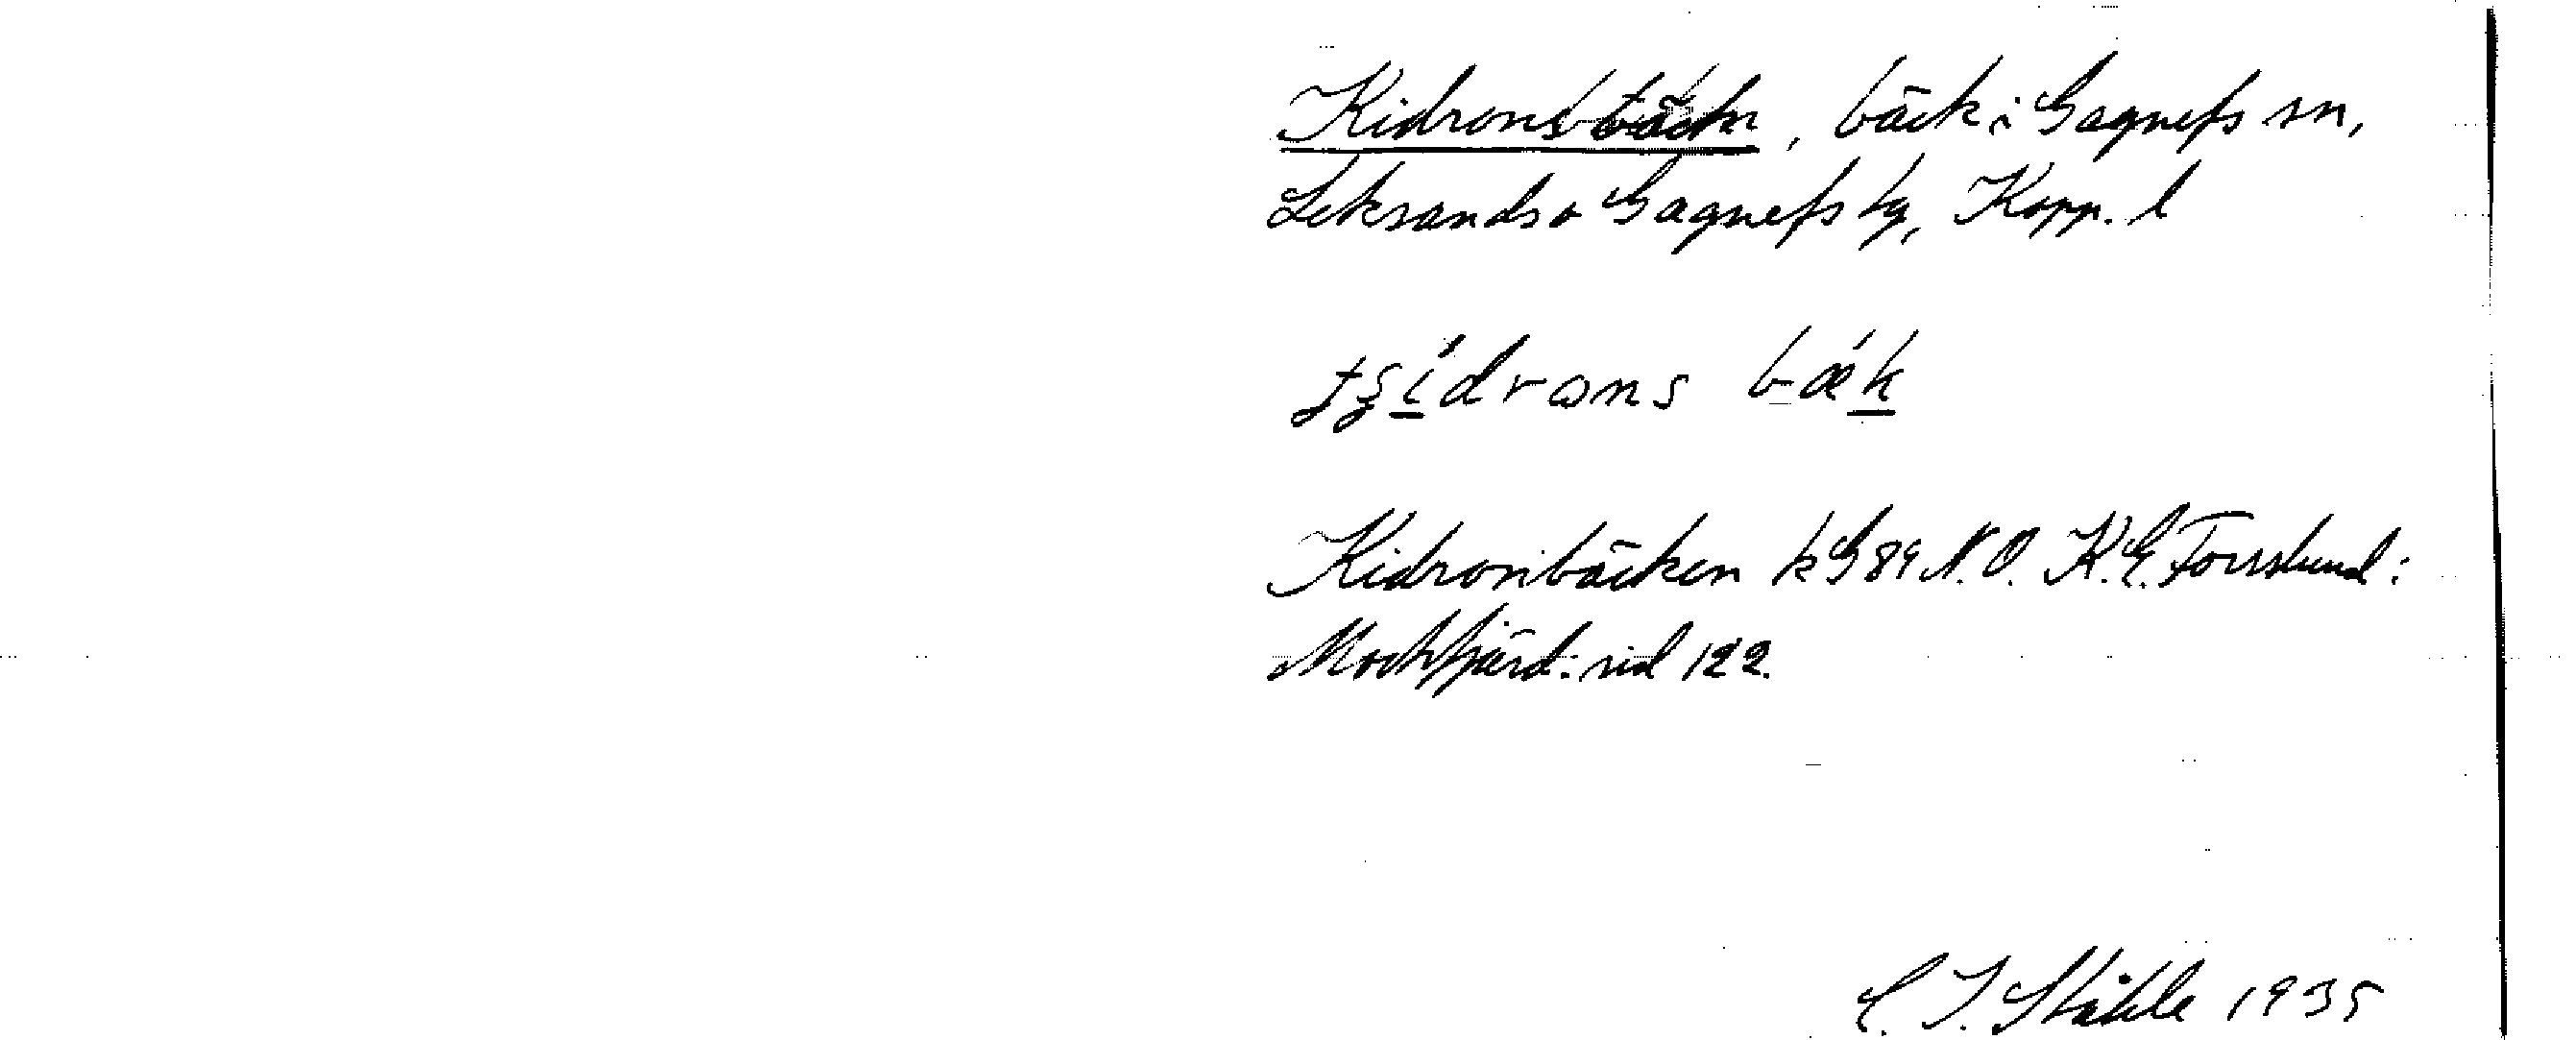 Kidronsbäck, bäck i Gagnefs sn,
Leksands o Gagnefs tg, Kopp. l
tʂídrans bǽk
Kidronbäcken kG 89 N.O. K.E. Forsslund:
Mockfjärd: sid 122.
C. I. Ståhle 1935